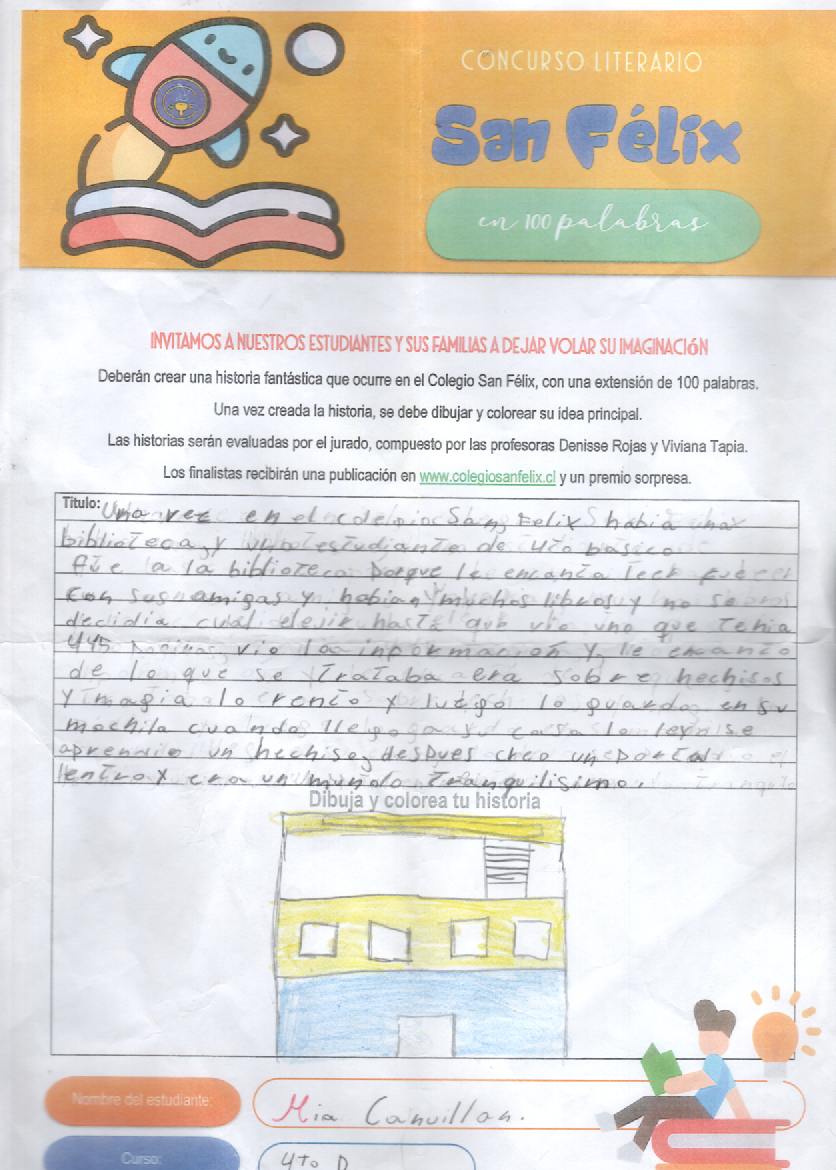 CONCURSO LITERARIO
San Félix
en 100 palabras
INVITAMOS A NUESTROS ESTUDIANTES Y SUS FAMILIAS A DEJAR VOLAR SU IMAGINACIÓN
Deberán crear una historia fantástica que ocurre en el Colegio San Félix, con una extensión de 100 palabras.
Una vez creada la historia, se debe dibujar y colorear su idea principal.
Las historias serán evaluadas por el jurado, compuesto por las profesoras Denisse Rojas y Viviana Tapia.
Los finalistas recibirán una publicación en www.colegiosanfelix.cl y un premio sorpresa.
Titulo: Una vez en el San Felix había una
biblioteca y estudiante de 4to básico
fue a la biblioteca porque le encanta leer fue
con sus amigas y habían muchos libros y no se
decidia cual elejir hasta que vio uno que tenia
445 paginas vio la informacion y le encanto
de lo que se trataba era sobre hechisos
y magia lo rento y luego lo guardo en su
mochila cuando llego a su casa lo leyo se
aprendio un hechiso y despues creo un portal
entro y era un mundo tranquilisimo.
Dibuja y colorea tu historia
Nombre del estudiante: Mia
Curso: 4to D